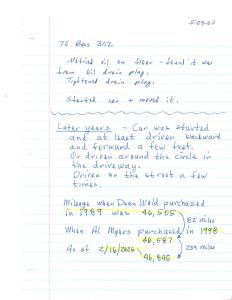 5-09-00
70 Boss 302
Noticed oil on floor - found it was
from oil drain plug.
Tightened drain plug.
Started car + moved it.
Later years - Car was started
and at least driven backward
and forward a few feet.
Or driven around the circle in
the driveway.
Driven on the street a few
times.
Mileage when Dean Wold purchased
in 1989 was 46,505
82 miles
When Al Myers purchased in 1998
46,587
As of 2/16/2026 259 miles
46,846